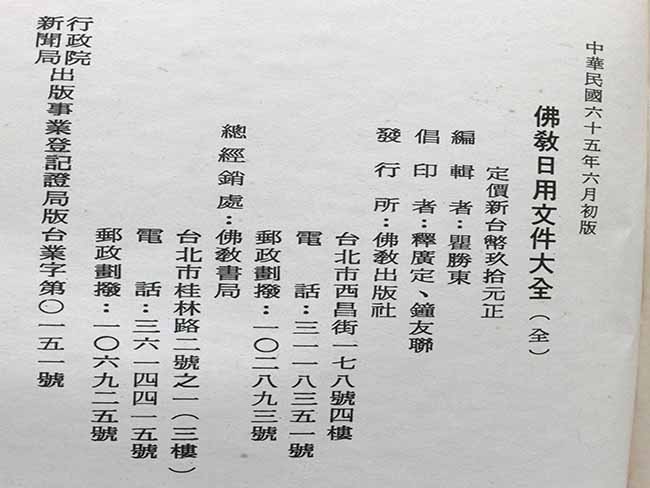 中華民國六十五年六月初版
佛教日用文件大全（全）
定價新台幣玖拾元正
編輯者：瞿勝東
倡印者：釋廣定、鐘友聯
發行所：佛教出版社
台北市西昌街一七八號四樓
電話：三一一八三五一號
郵政劃撥：一〇二八九三號
總經銷處：佛教書局
台北市桂林路二號之一（三樓）
電話：三六一四四一五號
郵政劃撥：一〇六九二五號
行政院新聞局出版事業登記證局版台業字第〇一五一號